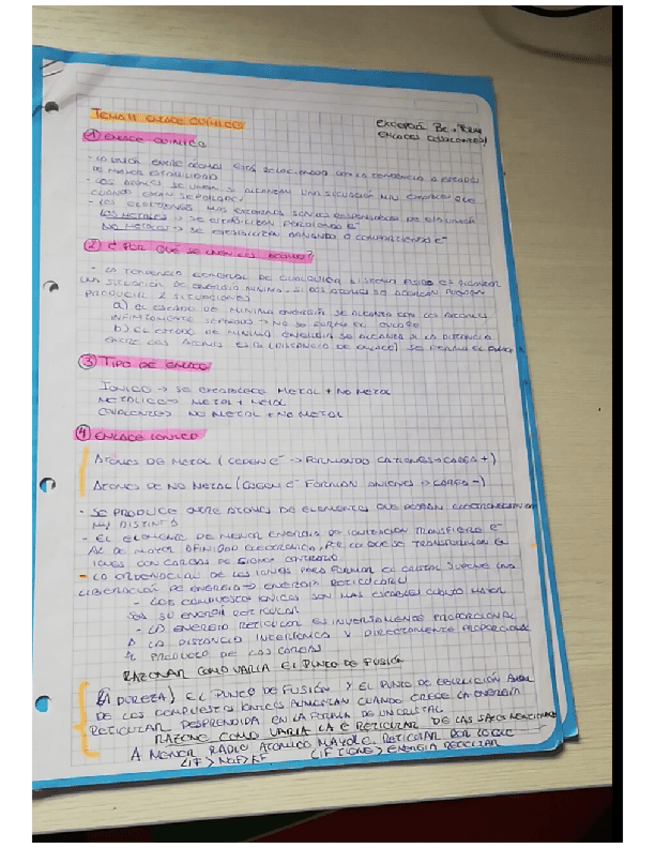 TEMA 11 ENLACE QUÍMICO
EXCEPCIÓN Be
ENLACES COVALENTES
① ENLACE QUÍMICO
- LA UNIÓN ENTRE ÁTOMOS ESTÁ RELACIONADA CON LA TENDENCIA A
DE MAYOR ESTABILIDAD
- LOS ÁTOMOS SE UNEN SI ALCANZAN UNA SITUACIÓN MAS ESTABLE QUE
CUANDO ESTAN SEPARADOS
- LOS ELECTRONES MAS EXTERNOS SON RESPONSABLES DE ESTA UNIÓN
LOS METALES → SE ESTABILIZAN PERDIENDO e⁻
NO METALES → SE ESTABILIZAN GANANDO O COMPARTIENDO e⁻
② ¿POR QUÉ SE UNEN LOS ÁTOMOS?
- LA TENDENCIA GENERAL DE CUALQUIER SISTEMA FÍSICO ES ALCANZAR
UNA SITUACIÓN DE ENERGÍA MÍNIMA. SI DOS ÁTOMOS SE ACERCAN PUEDEN
PRODUCIR 2 SITUACIONES
a) EL ESTADO DE MINIMA ENERGÍA SE ALCANZA CON LOS ÁTOMOS
INFINITAMENTE SEPARADOS → NO SE FORMA EL ENLACE
b) EL ESTADO DE MÍNIMA ENERGÍA SE ALCANZA SI LA DISTANCIA
ENTRE LOS ÁTOMOS ES (DISTANCIA DE ENLACE) SE FORMA EL ENLACE
③ TIPO DE ENLACE
IONICO → SE ESTABLECE METAL + NO METAL
METÁLICO → METAL + METAL
COVALENTE → NO METAL + NO METAL
④ ENLACE IONICO
ÁTOMOS DE METAL (CEDEN e⁻ → FORMANDO CATIONES → CARGA +)
ÁTOMOS DE NO METAL (COGEN e⁻ FORMAN ANIONES → CARGA -)
- SE PRODUCE ENTRE ÁTOMOS DE ELEMENTOS QUE POSEAN ELECTRONEGATIVIDAD
MUY DISTINTA
- EL ELEMENTO DE MENOR ENERGÍA DE IONIZACIÓN TRANSFIERE e⁻
AL DE MAYOR AFINIDAD ELECTRÓNICA, POR LO QUE SE TRANSFORMAN EN
IONES CON CARGAS DE SIGNO CONTRARIO
- LA ORDENACIÓN DE LOS IONES PARA FORMAR EL CRISTAL SUPONE UNA
LIBERACIÓN DE ENERGÍA → ENERGÍA RETICULAR
- LOS COMPUESTOS IONICOS SON MAS ESTABLES CUANTO MAYOR
SEA SU ENERGÍA RETICULAR
- LA ENERGÍA RETICULAR ES INVERSAMENTE PROPORCIONAL
A LA DISTANCIA INTERIÓNICA Y DIRECTAMENTE PROPORCIONAL
AL PRODUCTO DE LAS CARGAS
RAZONAR COMO VARIA EL PUNTO DE FUSIÓN
LA DUREZA, EL PUNTO DE FUSIÓN Y EL PUNTO DE EBULLICIÓN
DE LOS COMPUESTOS IONICOS AUMENTAN CUANDO CRECE LA ENERGÍA
RETICULAR DESPRENDIDA EN LA FORMA DE UN CRISTAL
RAZONE COMO VARIA LA E RETICULAR DE LAS SALES MENCIONADAS
A MENOR RADIO ATOMICO MAYOR E. RETICULAR POR LO QUE
LiF > NaF > KF (LiF TIENE > ENERGÍA RETICULAR